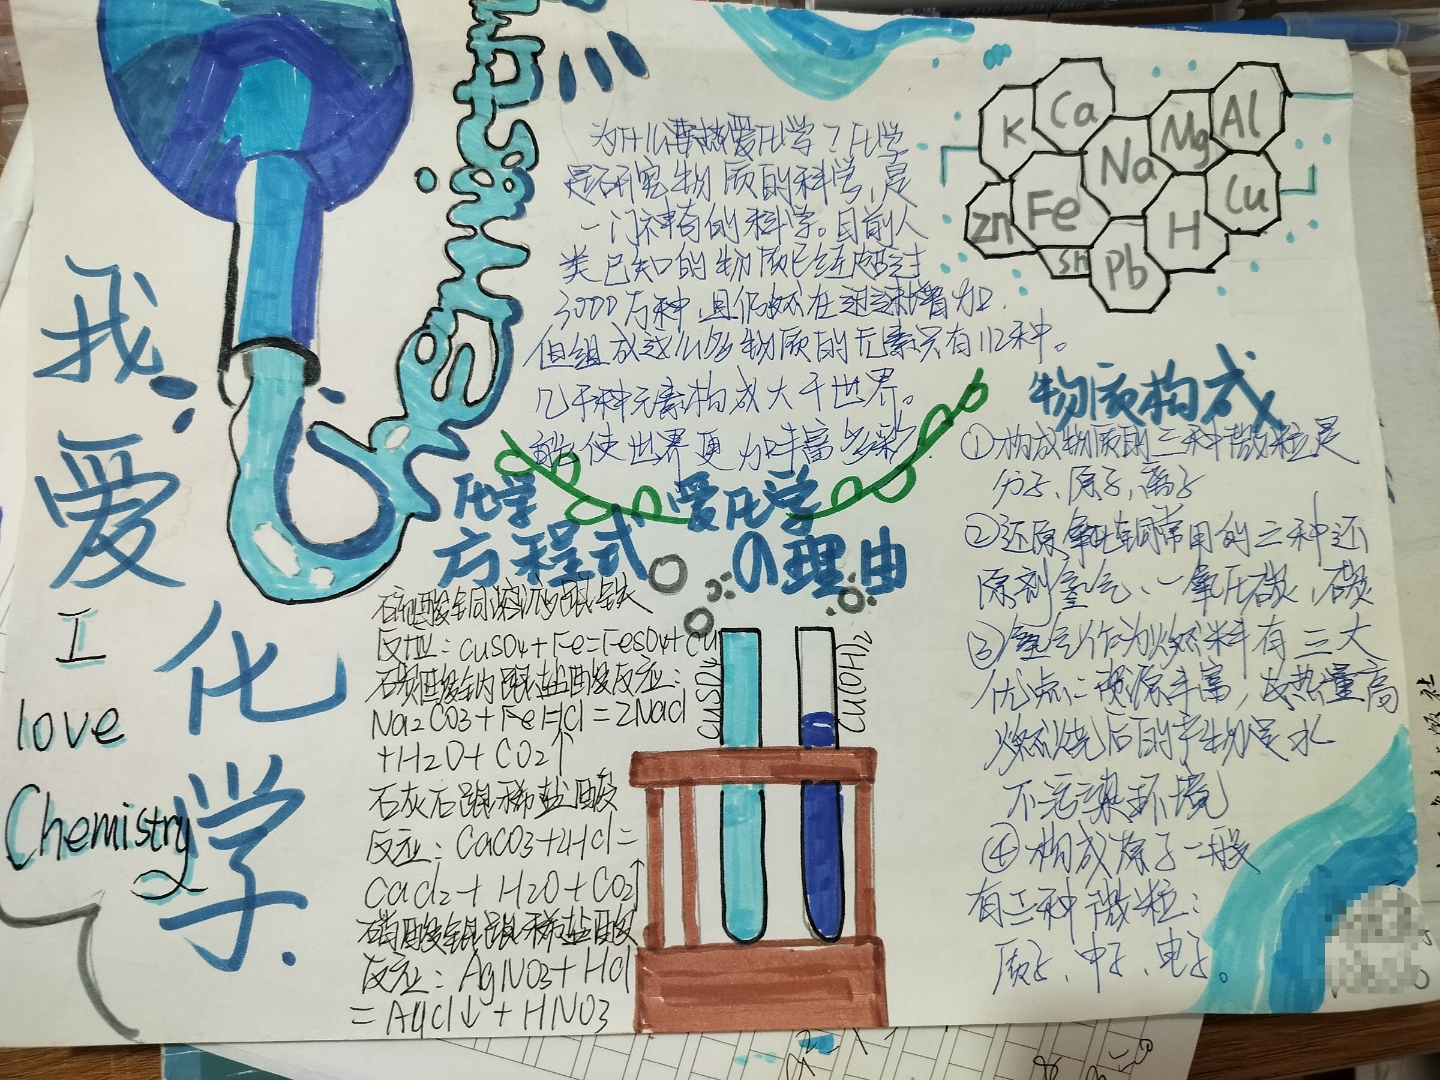 我
爱
化
学
I
love
Chemistry
为什么要热爱化学？化学
是研究物质的科学，是
一门神奇的科学。目前人
类已知的物质已经超过
3000万种，且仍然在迅速增加。
但组成这么多物质的元素只有112种。
几千种元素构成大千世界。
能使世界更加丰富多彩。
爱化学
の理由
K
Ca
Mg
Al
Na
Zn
Fe
Cu
H
Sn
Pb
化学
方程式
硫酸铜溶液跟铁
反应：CuSO4+Fe=FeSO4+Cu
碳酸钠跟盐酸反应：
Na2CO3+FeHCl=2NaCl
+H2O+CO2↑
石灰石跟稀盐酸
反应：CaCO3+2HCl=
CaCl2+H2O+CO2↑
硝酸银跟稀盐酸
反应：AgNO3+HCl
=AgCl↓+HNO3
CuSO4
Cu(OH)2
物质构成
①构成物质的三种微粒是
分子、原子、离子
②还原氧化铜常用的三种还
原剂氢气、一氧化碳、碳
③氢气作为燃料有三大
优点：资源丰富，放热量高
燃烧后的产物是水
不污染环境
④构成原子一般
有三种微粒：
质子、中子、电子。